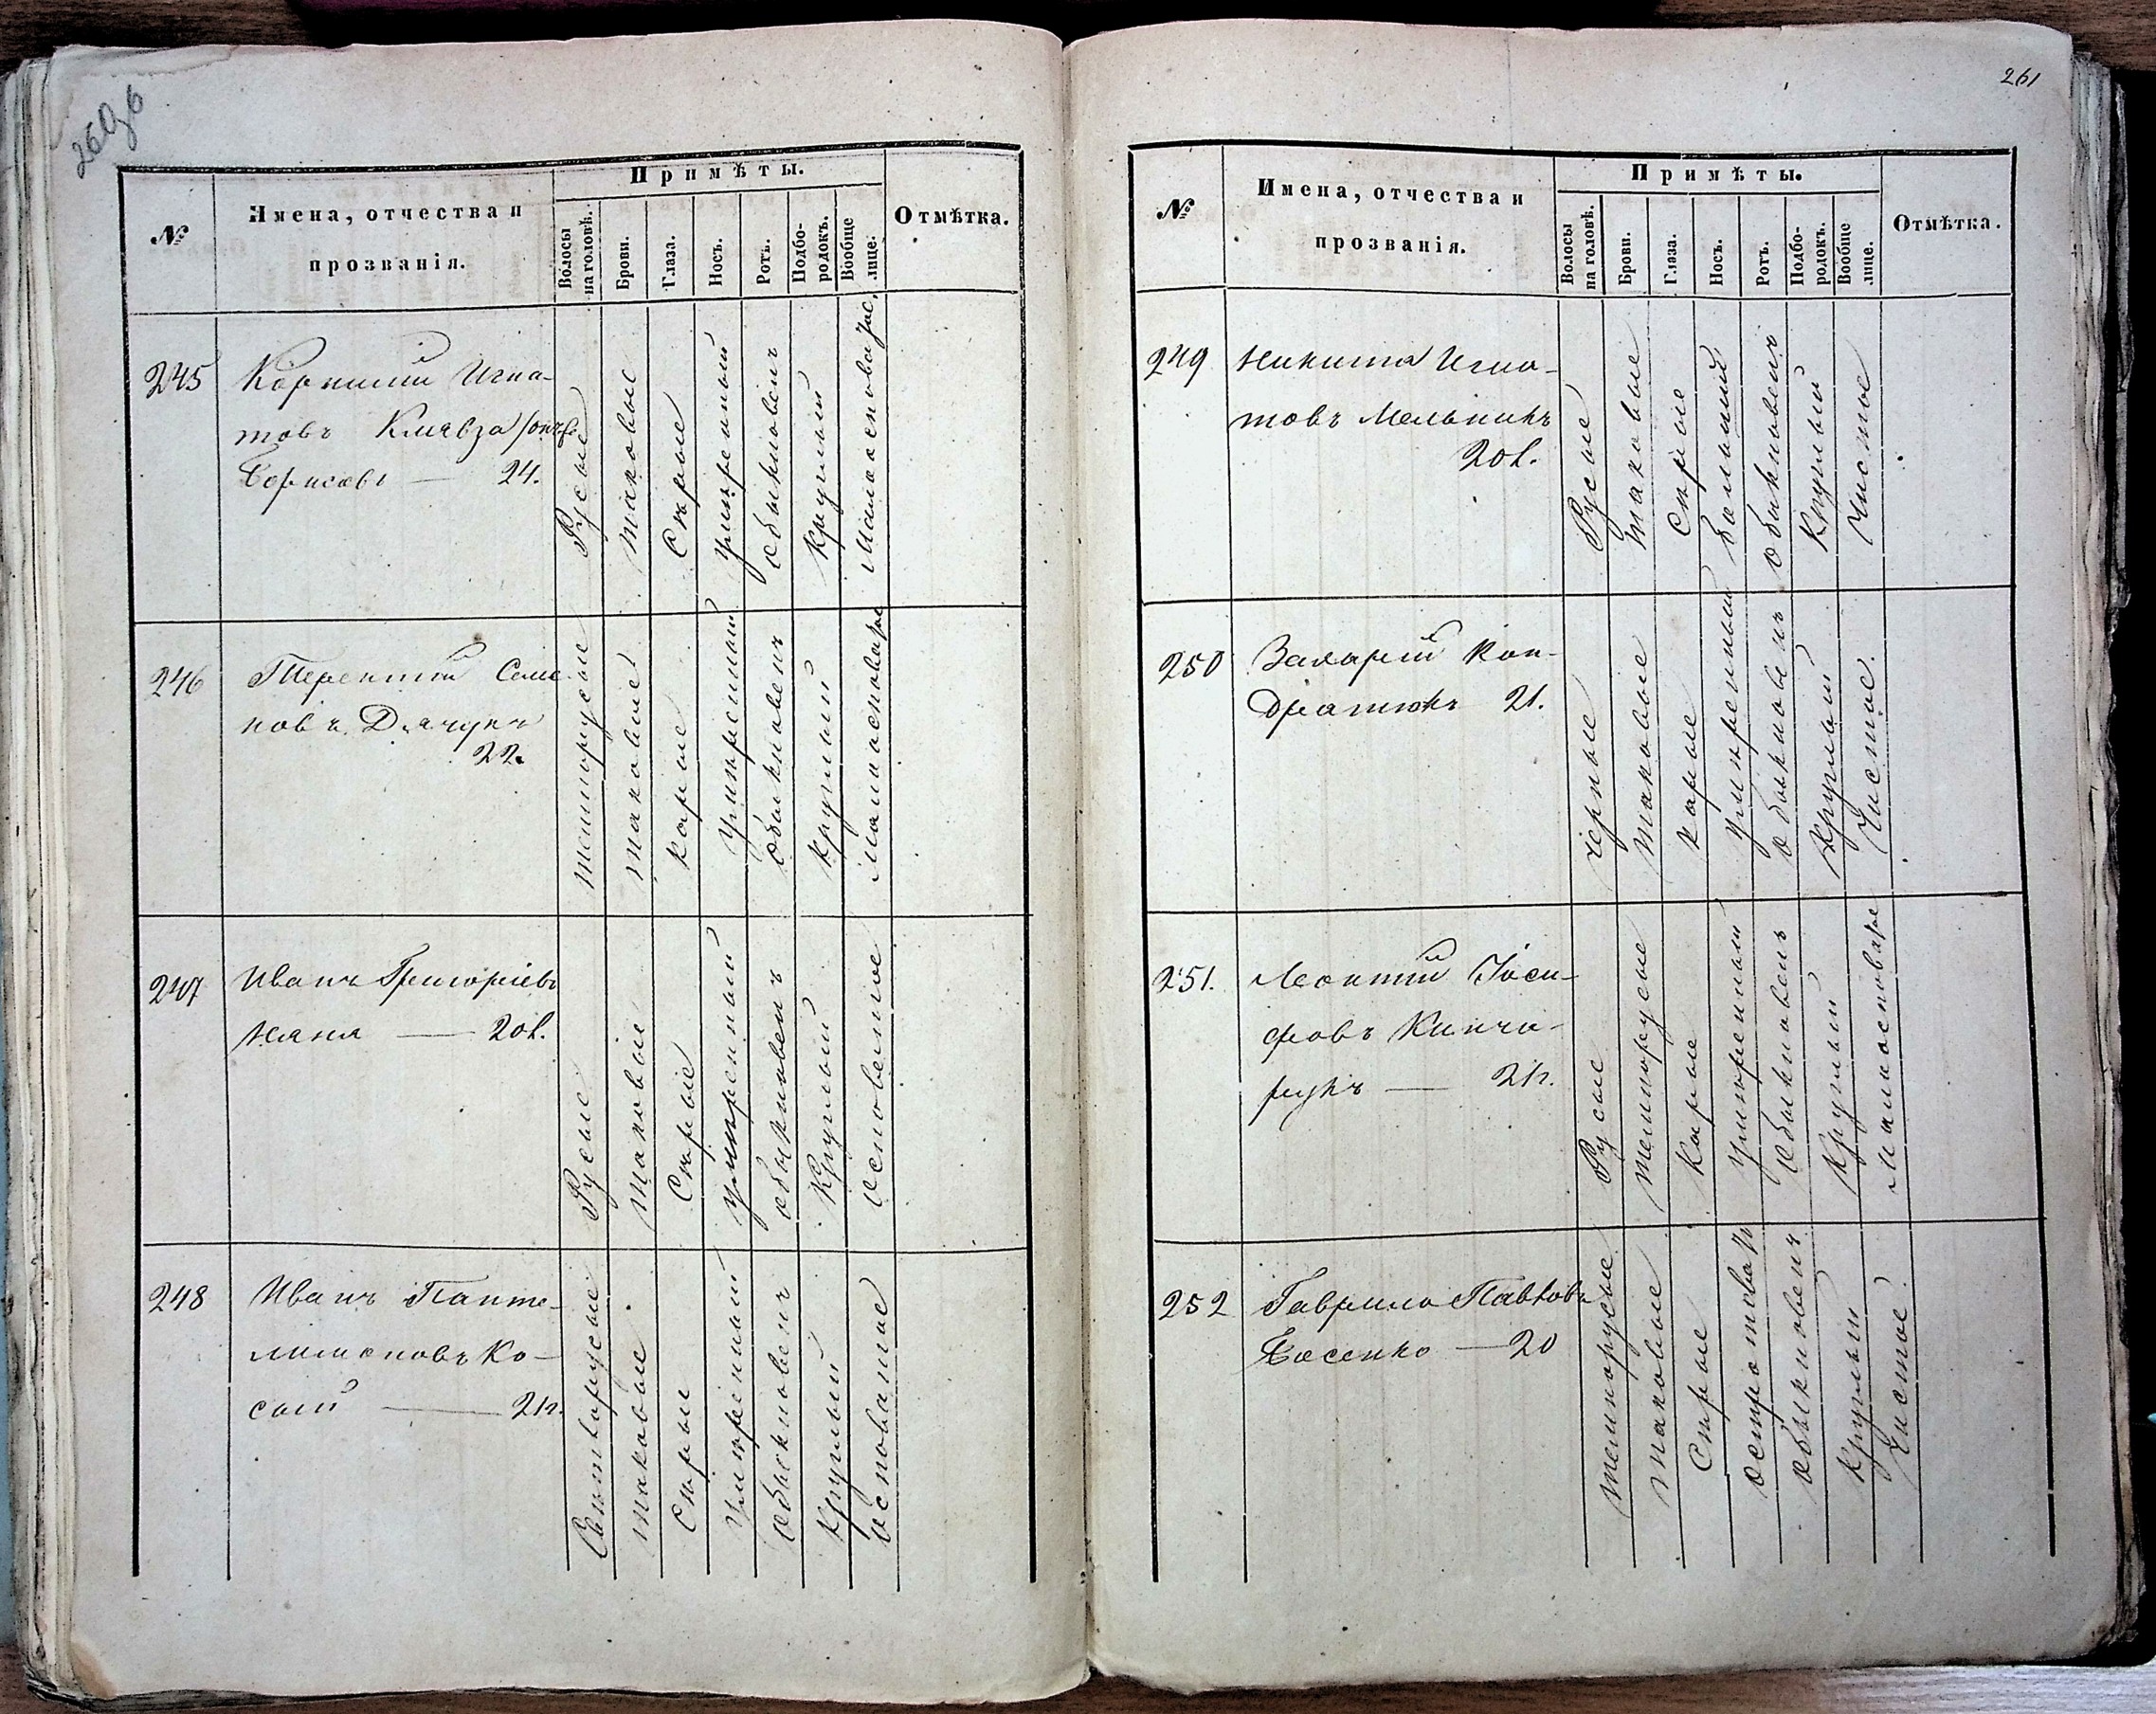 261
№
Имена, отчества и
прозванія.
Примѣты.
Волосы
на головѣ.
Брови.
Глаза.
Носъ.
Ротъ.
Подбо-
родокъ.
Вообще
лице.
Отмѣтка.
245
Корнилій Игна-
товъ
Борисовъ — 24.
Русые
таковые
Сѣрые
Умѣренный
Обыкновен
круглый
246
Терентій Семе
новъ Дячукъ
22.
темнорусые
таковые
карые
Умѣренный
Обыкновенъ
круглый
247
Иванъ Григоріевъ
Няня — 20 л.
Русые
таковые
Сѣрые
Умѣренный
обыкновенъ
Круглый
248
Иванъ Панте-
лимоновъ Ко-
сой — 21 г.
Свѣтлорусые
таковые
Сѣрые
Умѣренный
Обыкновенъ
Круглый
Осповатое
№
Имена, отчества и
прозванія.
Примѣты.
Волосы
на головѣ.
Брови.
Глаза.
Носъ.
Ротъ.
Подбо-
родокъ.
Вообще
лице.
Отмѣтка.
249
Никита Игна-
товъ Мельникъ
20 л.
Русые
таковые
Сѣрые
большой
Обыкновенъ
Круглый
Чистое
250
Захарій Кон-
дратюкъ 21.
черные
таковые
карые
Умѣренный
Обыкновенъ
Круглый
Чистое.
251.
Леонтій Іоси-
фовъ
21 г.
Русые
темнорусые
Карые
Умѣренный
Обыкновенъ
Круглый
252
Гаврило Павловъ
Босенко — 20
темнорусые
таковые
Сѣрые
Обыкновенъ
круглый
Чистое